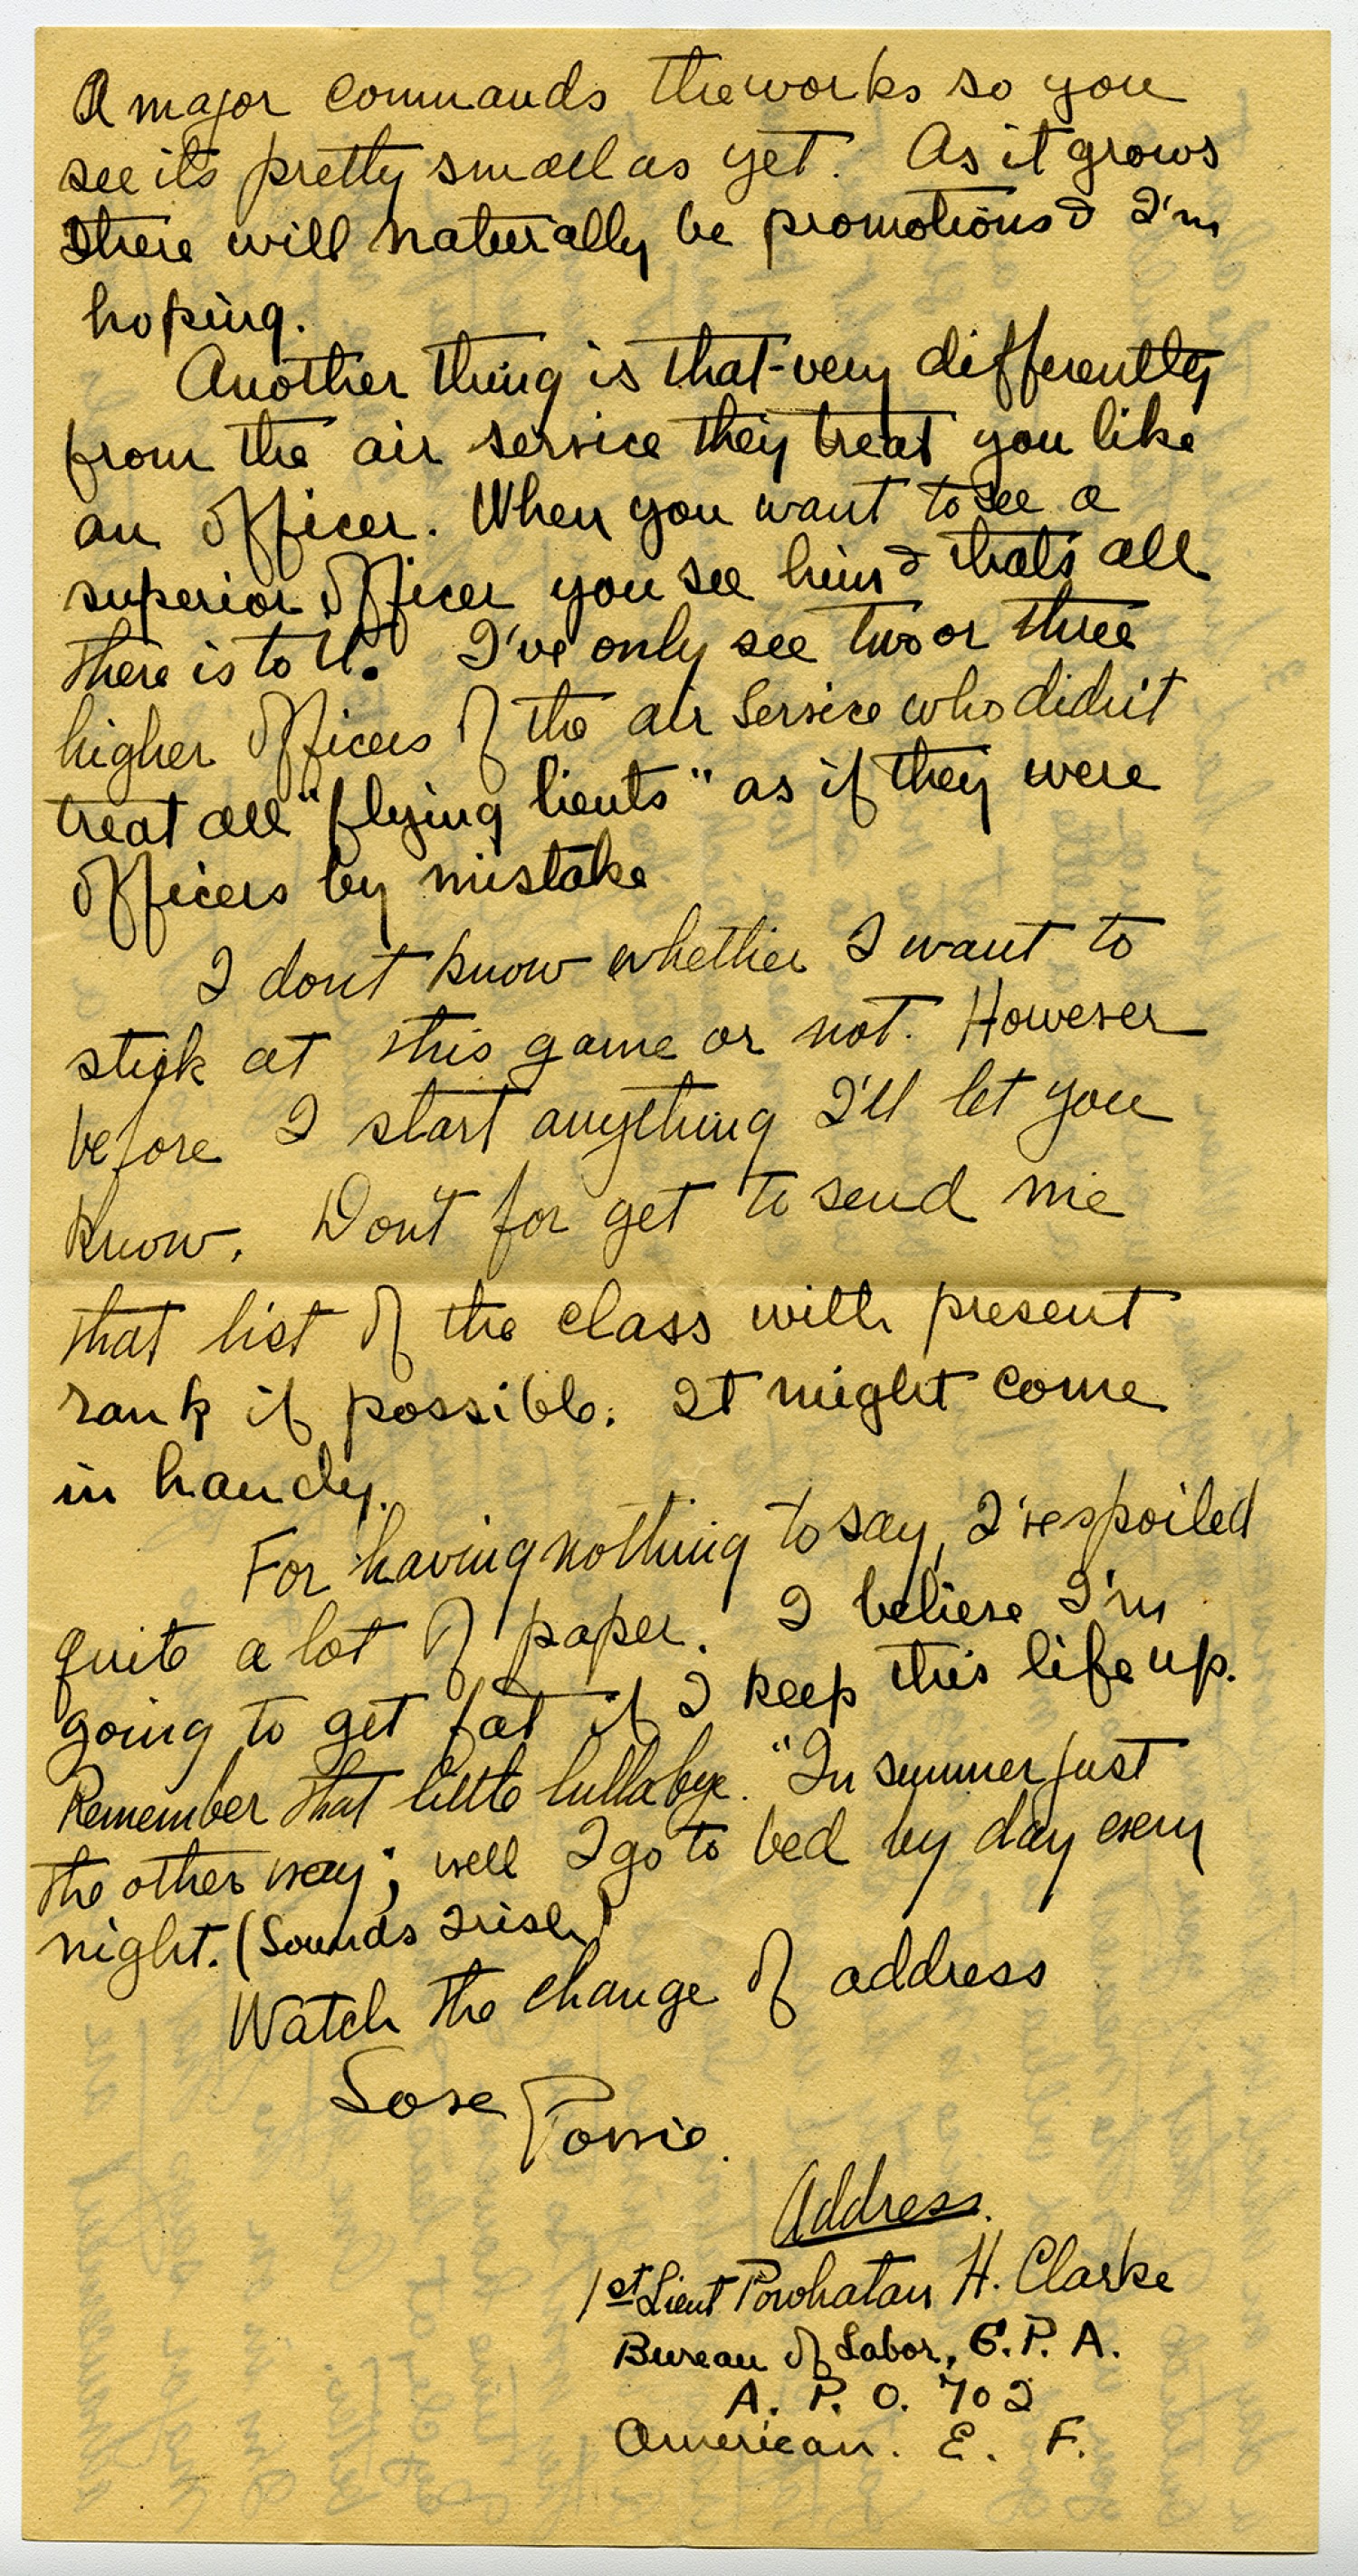 A major commands the works so you
see it's pretty small as yet. As it grows
there will naturally be promotions & I'm
hoping.
Another thing is that - very differently
from the air service they treat you like
an officer. When you want to see a
superior officer you see him & thats all
there is to it. I've only see two or three
higher officers of the air service who didn't
treat all "flying lieuts" as if they were
officers by mistake
I dont know whether I want to
stick at this game or not. However
before I start anything I'll let you
know. Don't for get to send me
that list of the class with present
rank if possible. It might come
in handy.
For having nothing to say, I've spoiled
quite a lot of paper. I believe I'm
going to get fat if I keep this life up.
Remember that little lullabye. "In summer just
the other way"; well I go to bed by day every
night. (Sounds Irish)
Watch the change of address
Love
Powie.
Address.
1st Lieut Powhatan H. Clarke
Bureau of Labor, G.P.A.
A. P. O. 702
American. E. F.